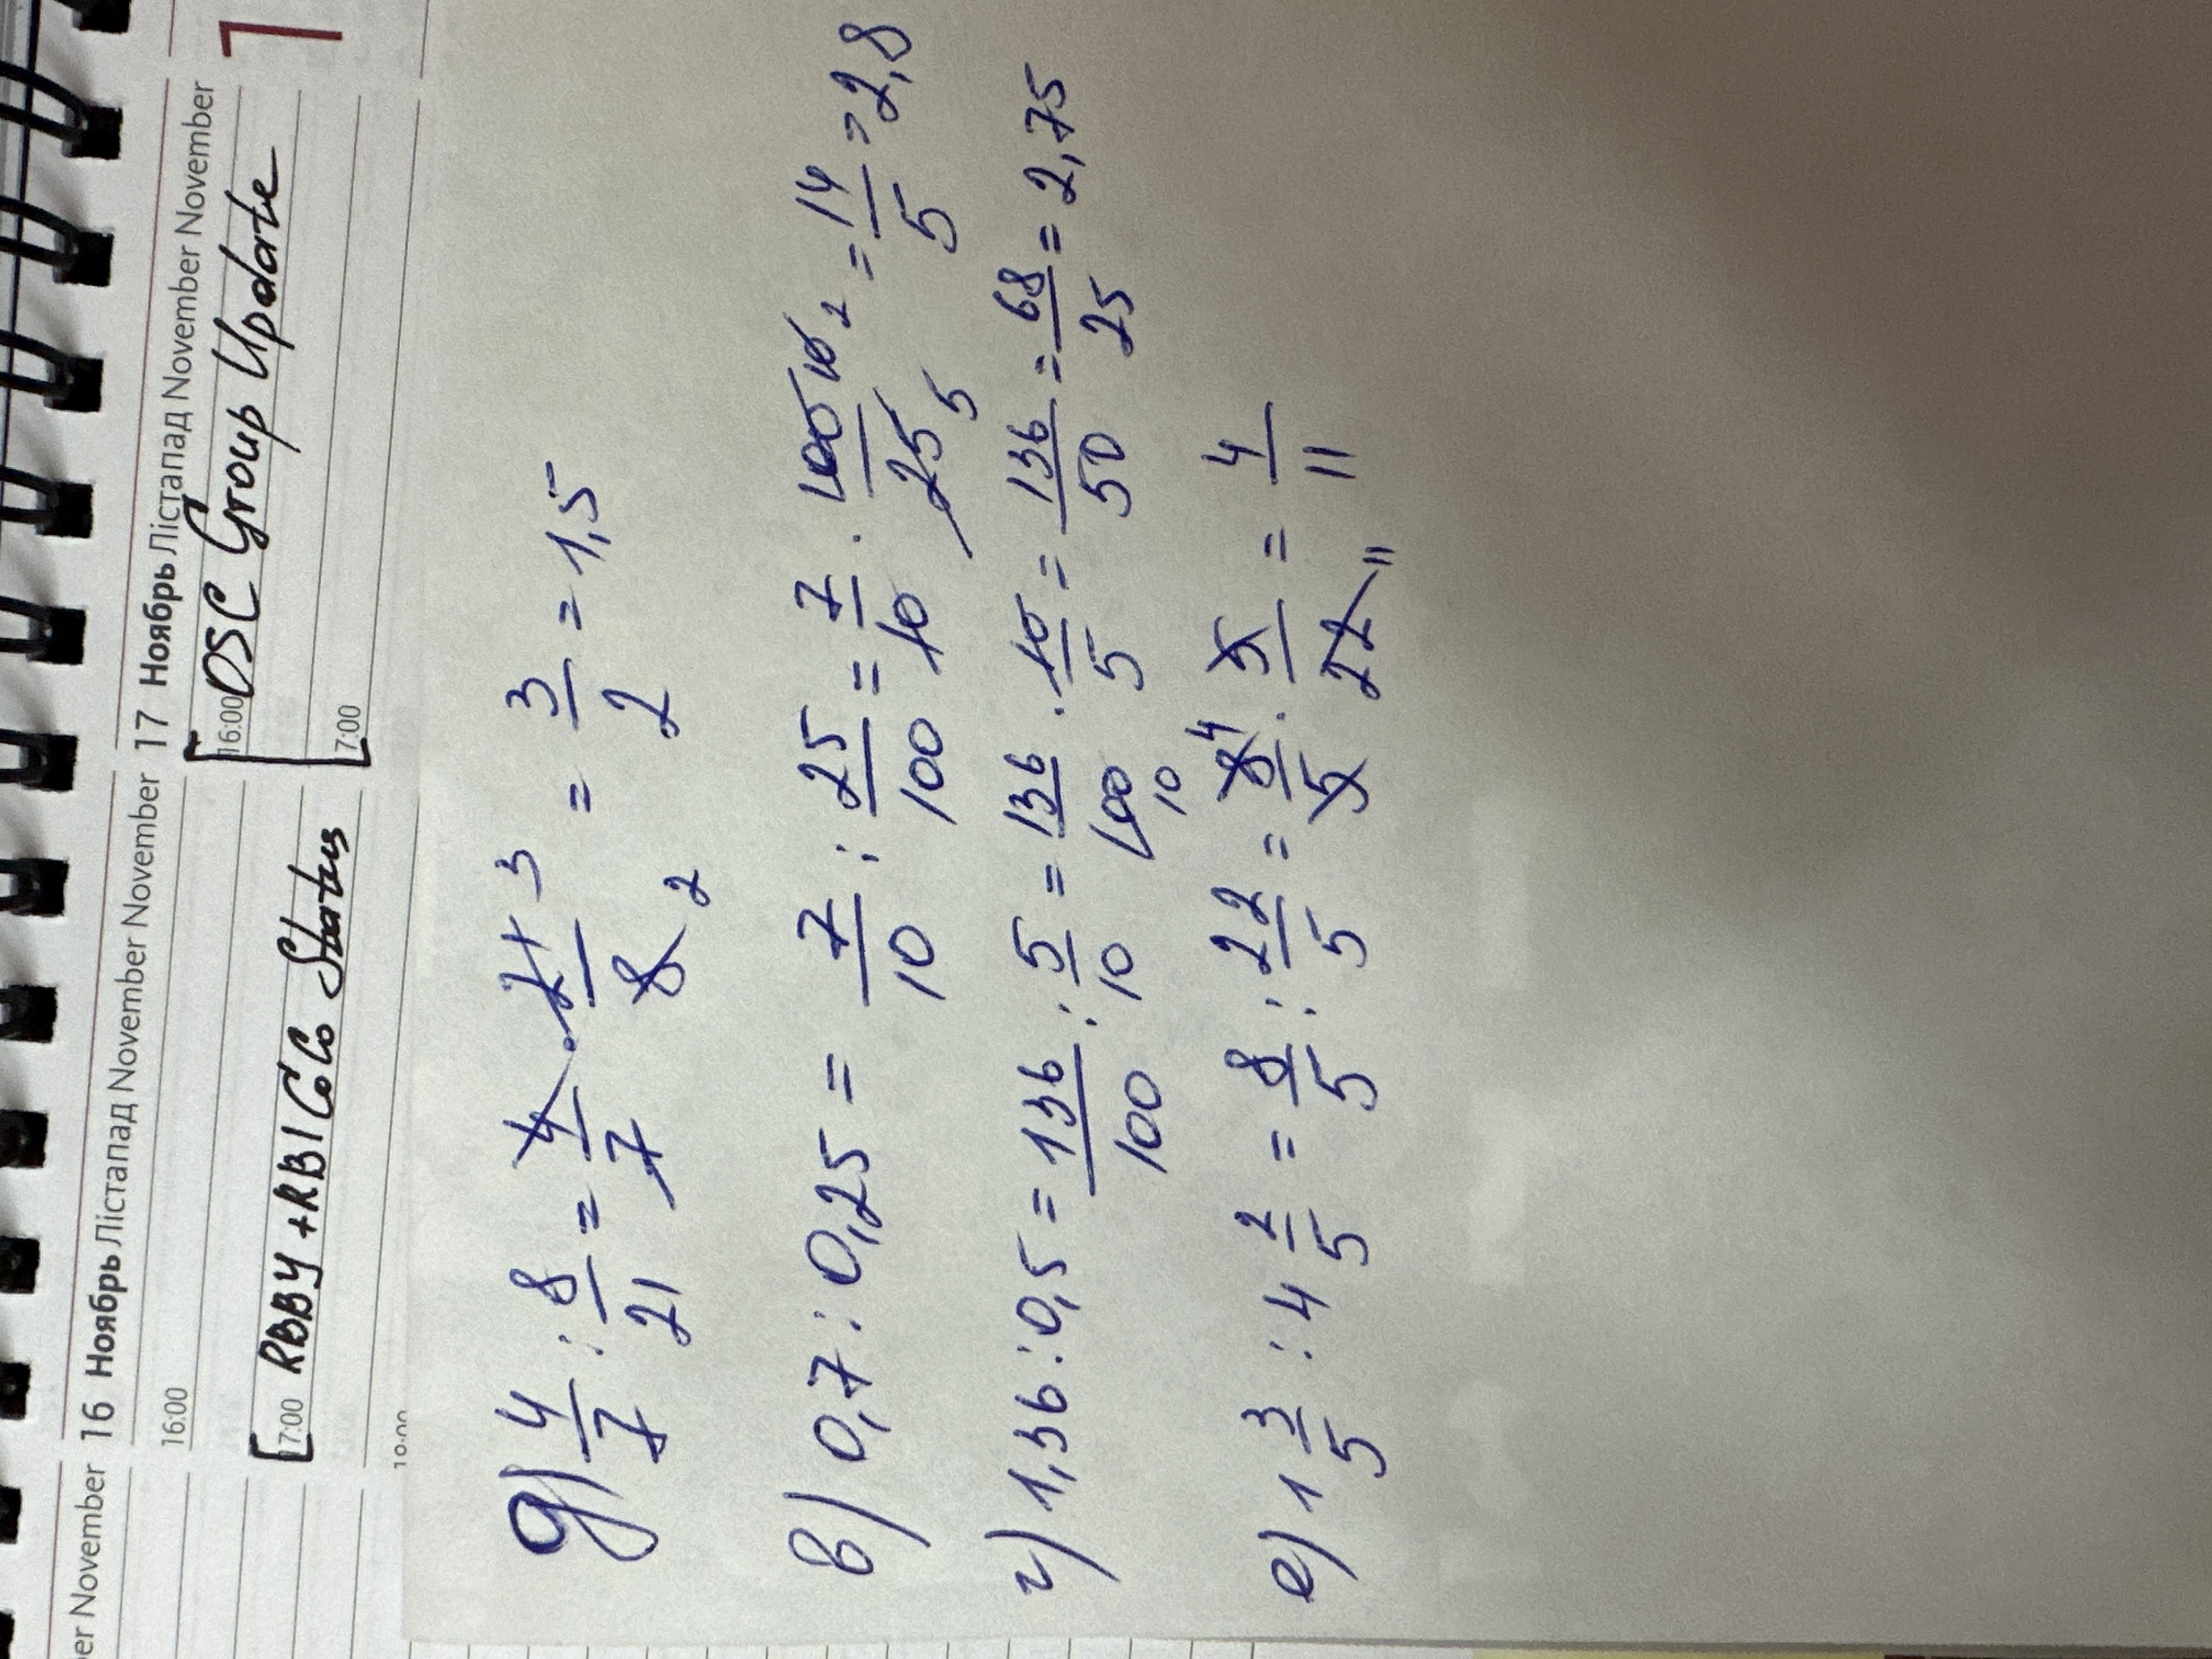 er November 16 Ноябрь Лістапад November November 17 Ноябрь Лістапад November November
16:00
16:00 OSC Group Update
17:00 RBBY + RBI CoCo Status
7:00
1
д) 4/7 : 8/21 = 4/7 · 21 3/8 2 = 3/2 = 1,5
в) 0,7 : 0,25 = 7/10 : 25/100 = 7/10 · 100 10 2/25 5 = 14/5 = 2,8
г) 1,36 : 0,5 = 136/100 : 5/10 = 136/100 10 · 10/5 = 136/50 = 68/25 = 2,75
е) 1 3/5 : 4 2/5 = 8/5 : 22/5 = 8 4/5 · 5/22 11 = 4/11